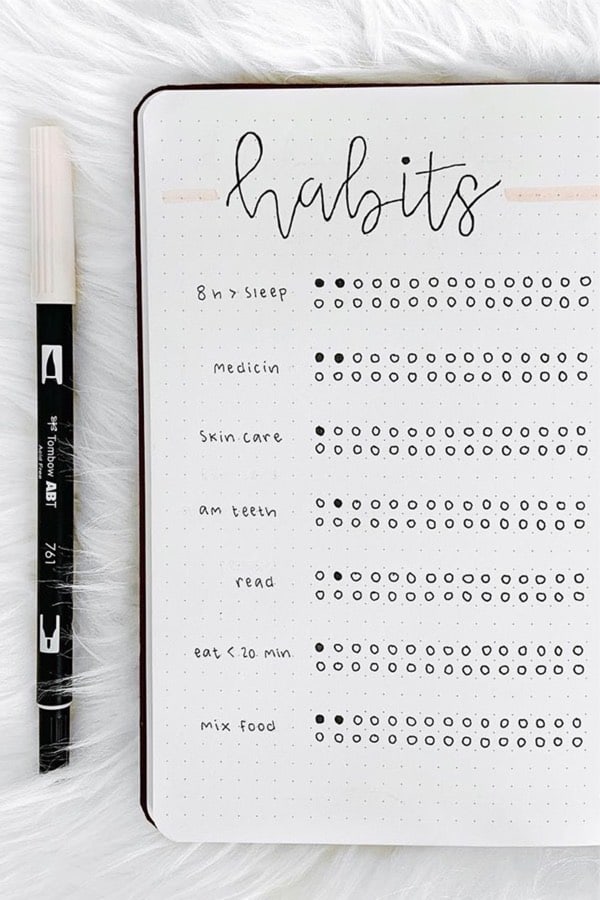 habits
8h > sleep
medicin
skin care
am teeth
read
eat < 20 min
mix food
Tombow ABT
Acid Free
761